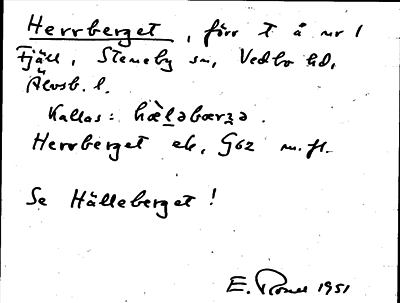 Herrberget, förr t å nr 1
Fjäll, Steneby sn, Vedbo hd,
Älvsb. l.
Kallas: hæ̀ḻəbærzə.
Herrberget ek. G62 m.fl.
Se Hälleberget!
E. 1951